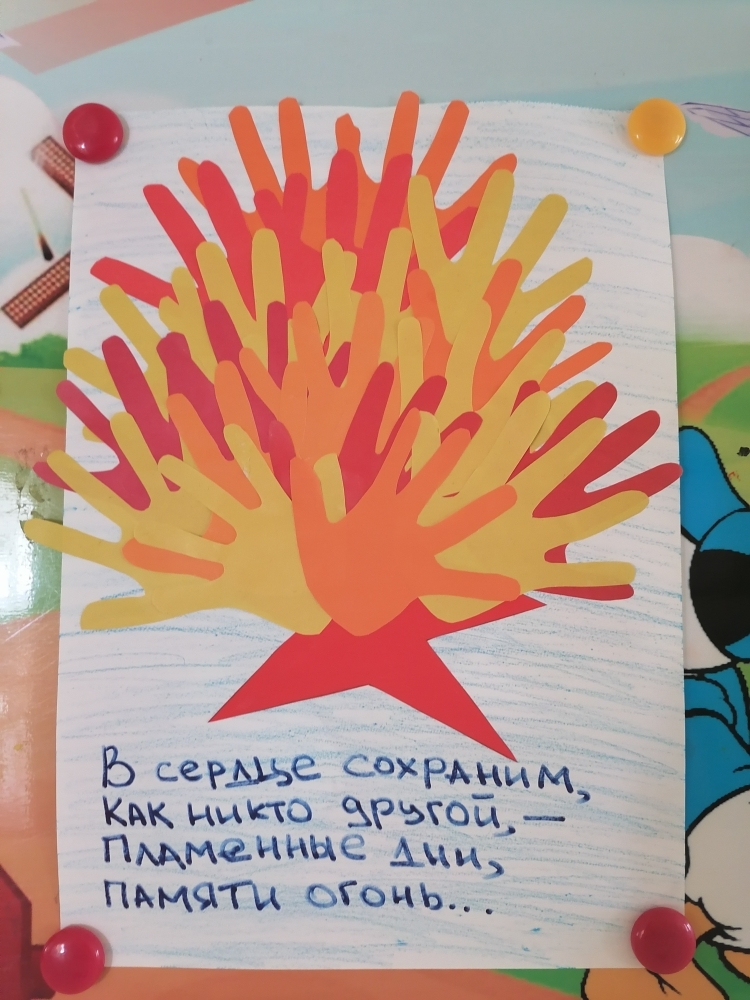 В сердце сохраним,
как никто другой, —
пламенные дни,
памяти огонь...